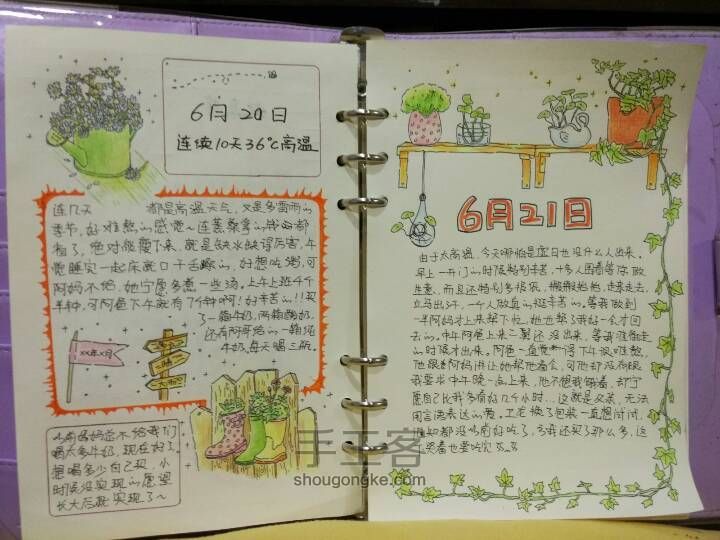 6月20日
连续10天36℃高温
连几天 都是高温天气,又是多雷雨的
季节,好难熬的感觉~连蒸桑拿的钱都
省了,绝对能瘦下来,就是缺水缺得厉害,午
觉睡完一起床就口干舌躁的,好想吃粥,可
阿妈不给,她宁愿多煮一些汤,上午上班4个
半钟,可阿爸下午就有7个钟啊!好辛苦的!!买
了一箱牛奶,两箱酸奶,
还有阿哥给的一箱纯
牛奶,每天喝三瓶。
xx年x月
小时候妈妈总不给我们
喝太多牛奶,现在好了,
想喝多少自己买,小
时候没实现的愿望
长大后就实现了~
6月21日
由于太高温,今天哪怕是虚日也没什么人出来。
早上一开门的时候特别辛苦,十多人围着等你做
生意,而且还特别多
立马出汗,一个人做真的挺辛苦的。等我做到
一半阿妈才上来帮下忙,她也帮了我好一会才回
去的。中午阿爸上来
的时候才出来。阿爸一直觉得下午很难熬,
他跟着阿妈讲让她帮他看会,可他却没有跟
我要求中午晚一点上来,他不想我锻着,却宁
愿自己比我多看好几个小时...这就是父亲,无法
用言语表达的爱。卫龙换了包装一直想问问,
谁知都没时间好吃了,亏我还买了那么多,这
哭着也要吃完
手工客
shougongke.com